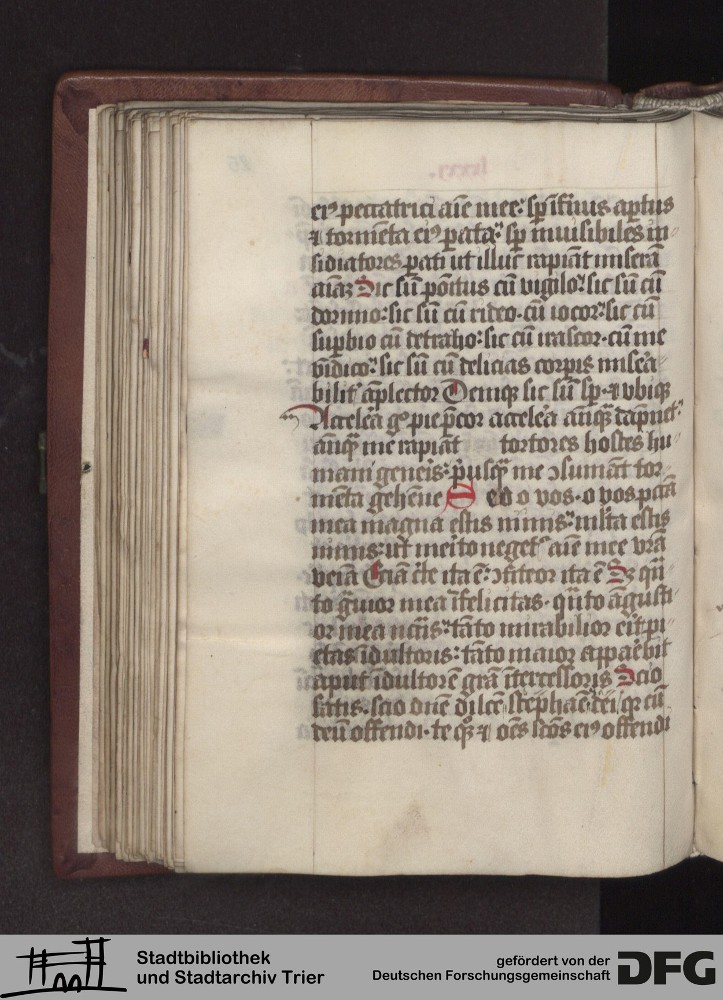 lxxxj.
eiꝰ peccatrici aīe mee: sp̄ īfinus ap̄tus
⁊ torm̄eta eiꝰ ꝑata: sp̄ inuisibiles in
sidiatores ꝑati ut illuc rapiāt miserā
aīaꝫ Sic sū poītus cū vigilo: sic sū cū
dormio: sic sū cū rideo. cū iocor: sic cū
suꝑbio cū detraho: sic cū irascor. cū me
vīdico: sic sū cū delicias corꝑis misea
bilit̄ āplector Deniqꝫ sic sū sp̄. ⁊ vbiqꝫ
Accelēa gͦ pie p̄cor accelēa ānqꝫ dāpnet͛
ānqꝫ me rapiāt tortores hostes hu
mani geneis: p̄usqꝫ me ↄsumāt tor
mēta gehēne Sed o vos. o vos pc̄ā
mea magna estis nimis: mlta estis
nimis: ut meito neget͛ aīe mee vr̄ā
veīa Eciā cͭe ita ē: ↄfiteor ita ē Sꝫ quā
to gͣuior mea īfelicitas. quāto āgusti
or mea nc̄cīs: tāto mirabilior eit pi
etas īdultoris: tāto maior appaēbit
aput īdultorē grā ītercessoris Scio
satis. scio dn̄e dilc̄e stephāe dei qꝛ cū
deū offendi. te qꝫ ⁊ oēs sc̄ōs eiꝰ offendi
Stadtbibliothek
und Stadtarchiv Trier
gefördert von der
Deutschen Forschungsgemeinschaft
DFG